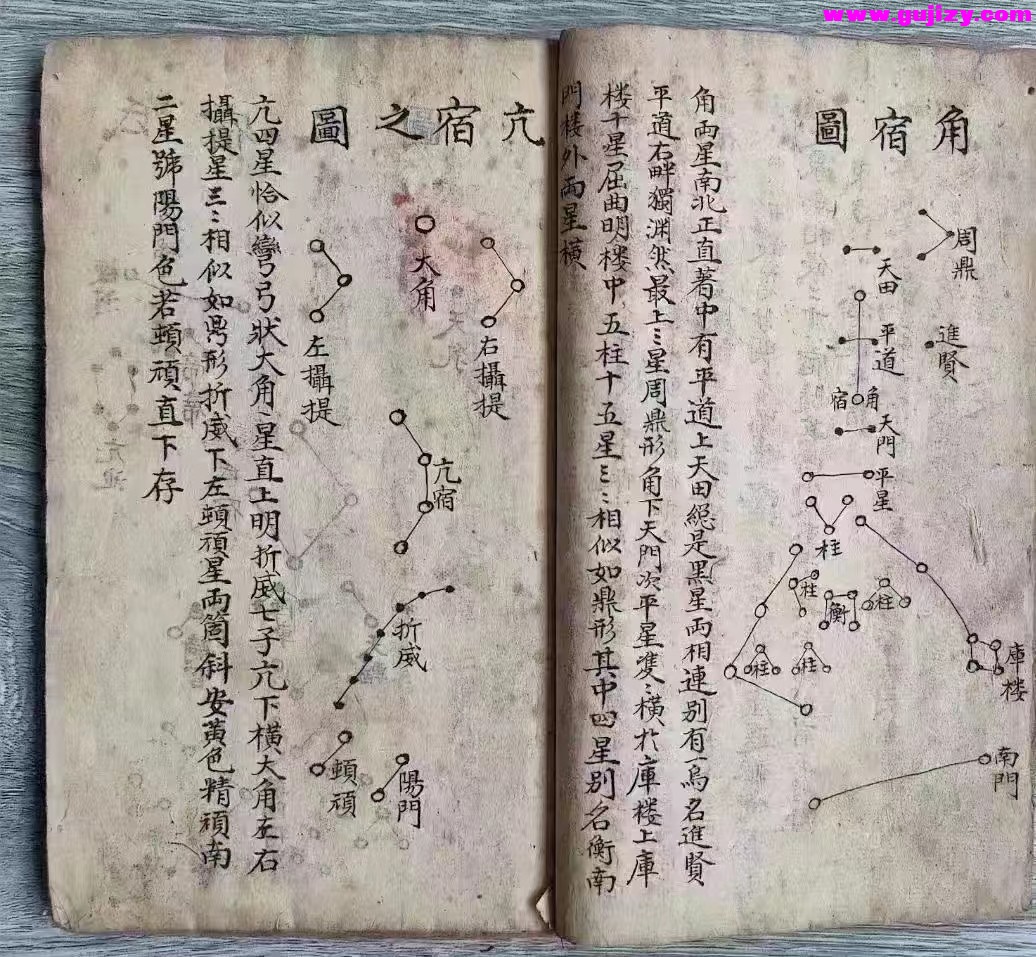 www.gujizy.com
角宿圖
周鼎
天田
進賢
平道
角宿
天門
平星
柱
柱
衡
柱
柱
柱
庫楼
南門
角兩星南北正直著中有平道上天田緫是黑星兩相連別有一烏名進賢
平道右畔獨渊然最上〻星周鼎形角下天門次平星雙〻橫扵庫楼上庫
楼十星屈曲明楼中五柱十五星三〻相似如鼎形其中四星別名衡南
門楼外兩星橫
亢宿之圖
大角
右攝提
左攝提
亢宿
折威
頓頑
陽門
亢四星恰似彎弓狀大角一星直上明折威七子亢下橫大角左右
攝提星三〻相似如鼎形折威下左頓頑星兩箇斜安黃色精頑南
二星號陽門色若頓頑直下存